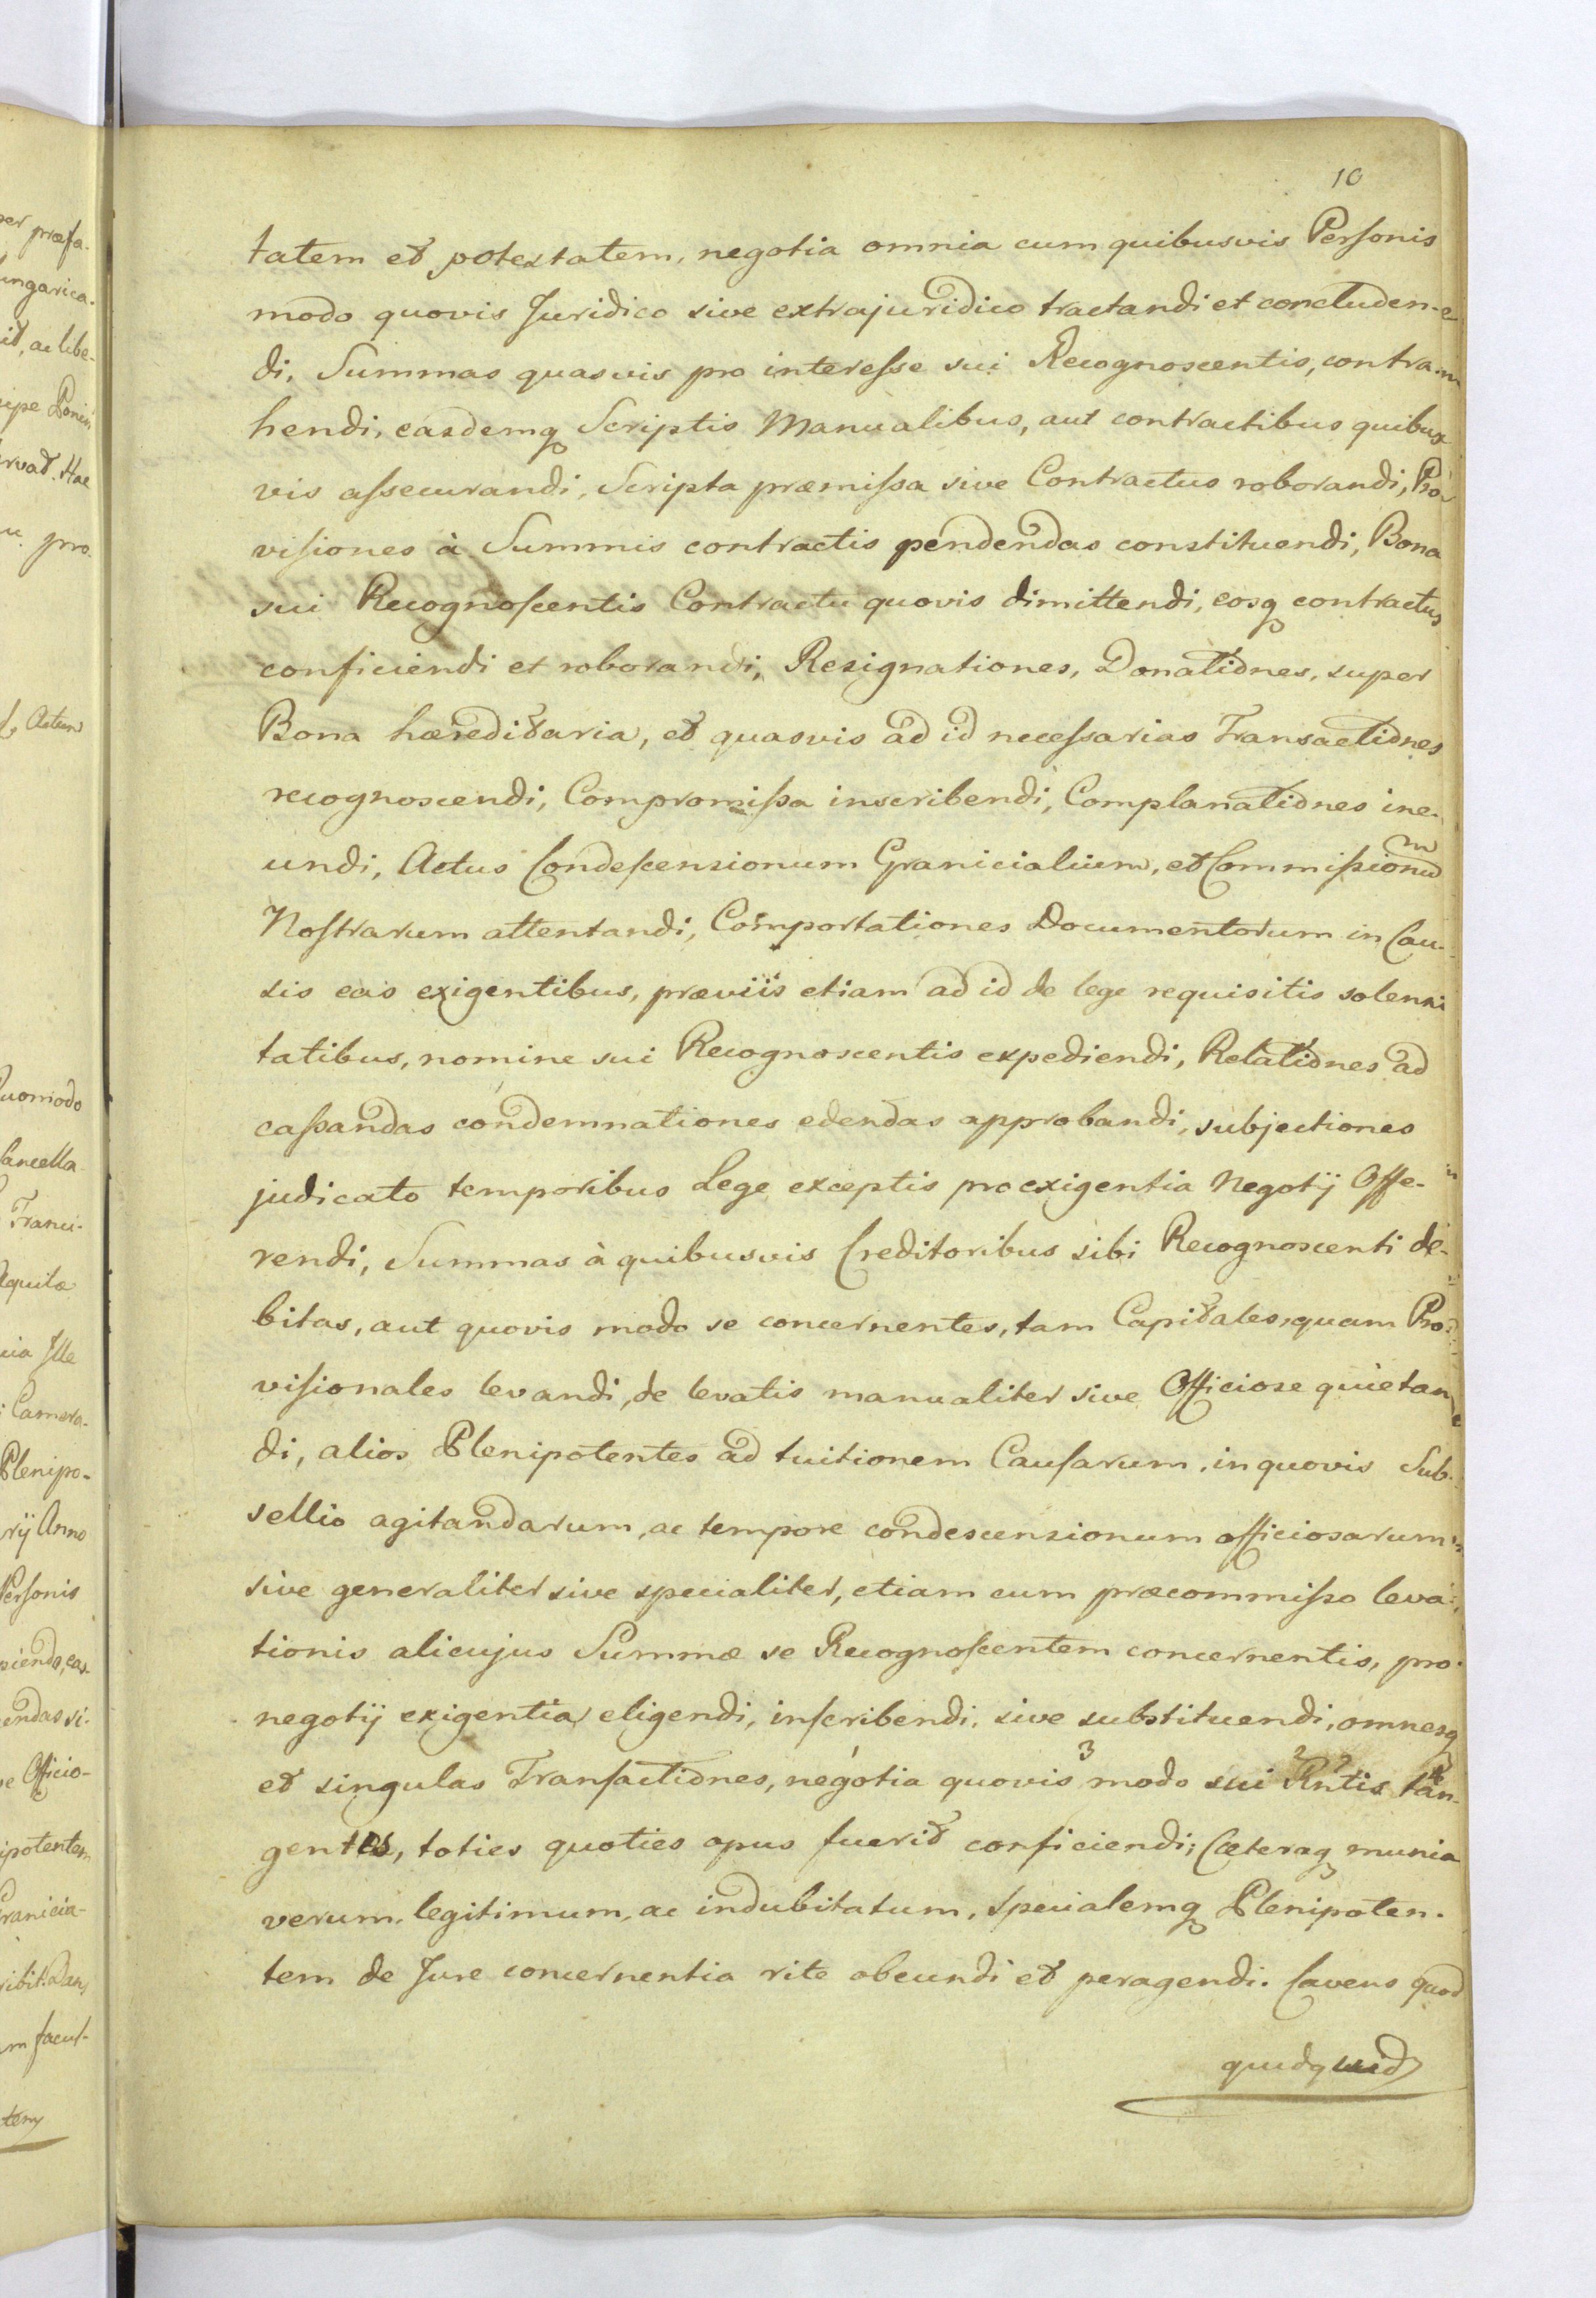 10
tatem et potestatem, negotia omnia cum quibusvis Personis
modo quovis Juridico sive extrajuridico tractandi et concluden-
di, Summas quasvis pro interesse sui Recognoscentis, contra-
hendi, easdemq Scriptis Manualibus, aut contractibus quibus
vis assecurandi, Scripta præmissa sive Contractus roborandi, Pro
visiones à Summis contractis pendendas constituendi, Bona
sui Recognoscentis Contractu quovis dimittendi, eosq contractus
conficiendi et roborandi, Resignationes, Donationes, super
Bona hæreditaria, et quasvis ad id necessarias Transactiones
recognoscendi, Compromissa inscribendi, Complanationes ine-
undi, Actus Condescensionum Granicialium, et Commissionum
Nostrarum attentandi, Comportationes Documentorum in Cau-
sis eas exigentibus, præviis etiam ad id de lege requisitis solenni
tatibus, nomine sui Recognoscentis expediendi, Relationes ad
cassandas condemnationes edendas approbandi, subjectiones
judicato temporibus Lege exceptis pro exigentia Negotij Offe-
rendi, Summas à quibusvis Creditoribus sibi Recognoscenti de-
bitas, aut quovis modo se concernentes, tam Capitales, quam Pro-
visionales levandi, de levatis manualiter sive Officiose quietan
di, alios Plenipotentes ad tuitionem Causarum, in quovis Sub-
sellio agitandarum, ac tempore condescensionum officiosarum
sive generaliter sive specialiter, etiam cum præcommisso leva-
tionis alicujus Summæ se Recognoscentem concernentis, pro
negotij exigentia eligendi, inscribendi, sive substituendi, omnesq
et singulas Transactiones, negotia quovis modo sui Rntis tan-
gentes, toties quoties opus fuerit conficiendi; Cæteraq munia
verum, legitimum, ac indubitatum, specialemq Plenipoten-
tem de Jure concernentia rite obeundi et peragendi. Cavens quod
quidquid